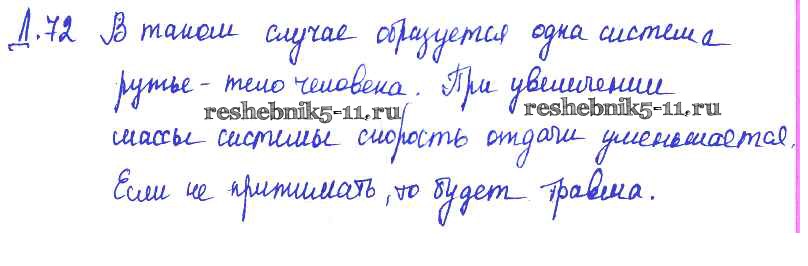 Д.72 В таком случае образуется одна система
ружье - тело человека. При увеличении
reshebnik5-11.ru reshebnik5-11.ru
массы системы скорость отдачи уменьшается.
Если не прижимать, то будет травма.